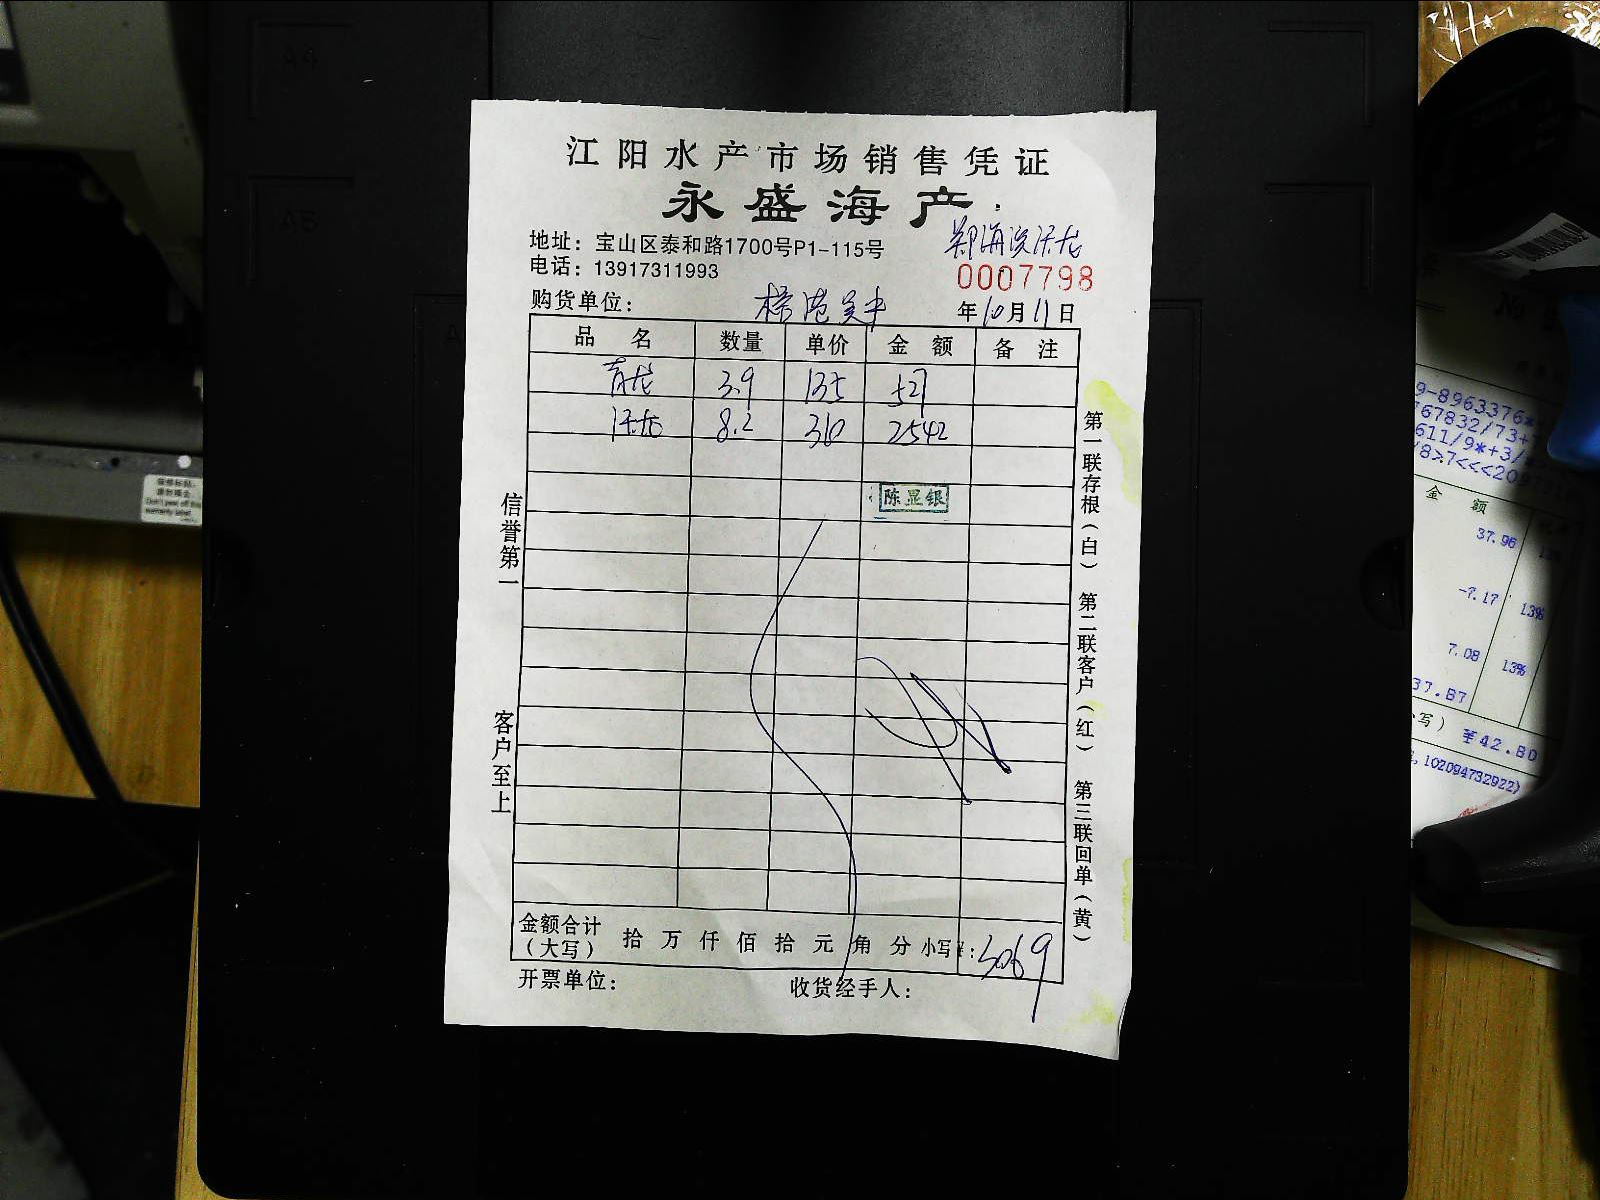 江阳水产市场销售凭证
永盛海产
地址：宝山区泰和路1700号P1-115号
电话：13917311993
0007798
购货单位：
年10月11日
品 名 数量 单价 金 额 备 注
青龙 3.9 135 527
8.2 310 2542
陈显银
信誉第一
客户至上
第一联存根（白） 第二联客户（红） 第三联回单（黄）
金额合计（大写） 拾 万 仟 佰 拾 元 角 分 小写￥：3069
开票单位： 收货经手人：
金 额
37.96
-7.17 13%
7.08 13%
37.87
￥42.80